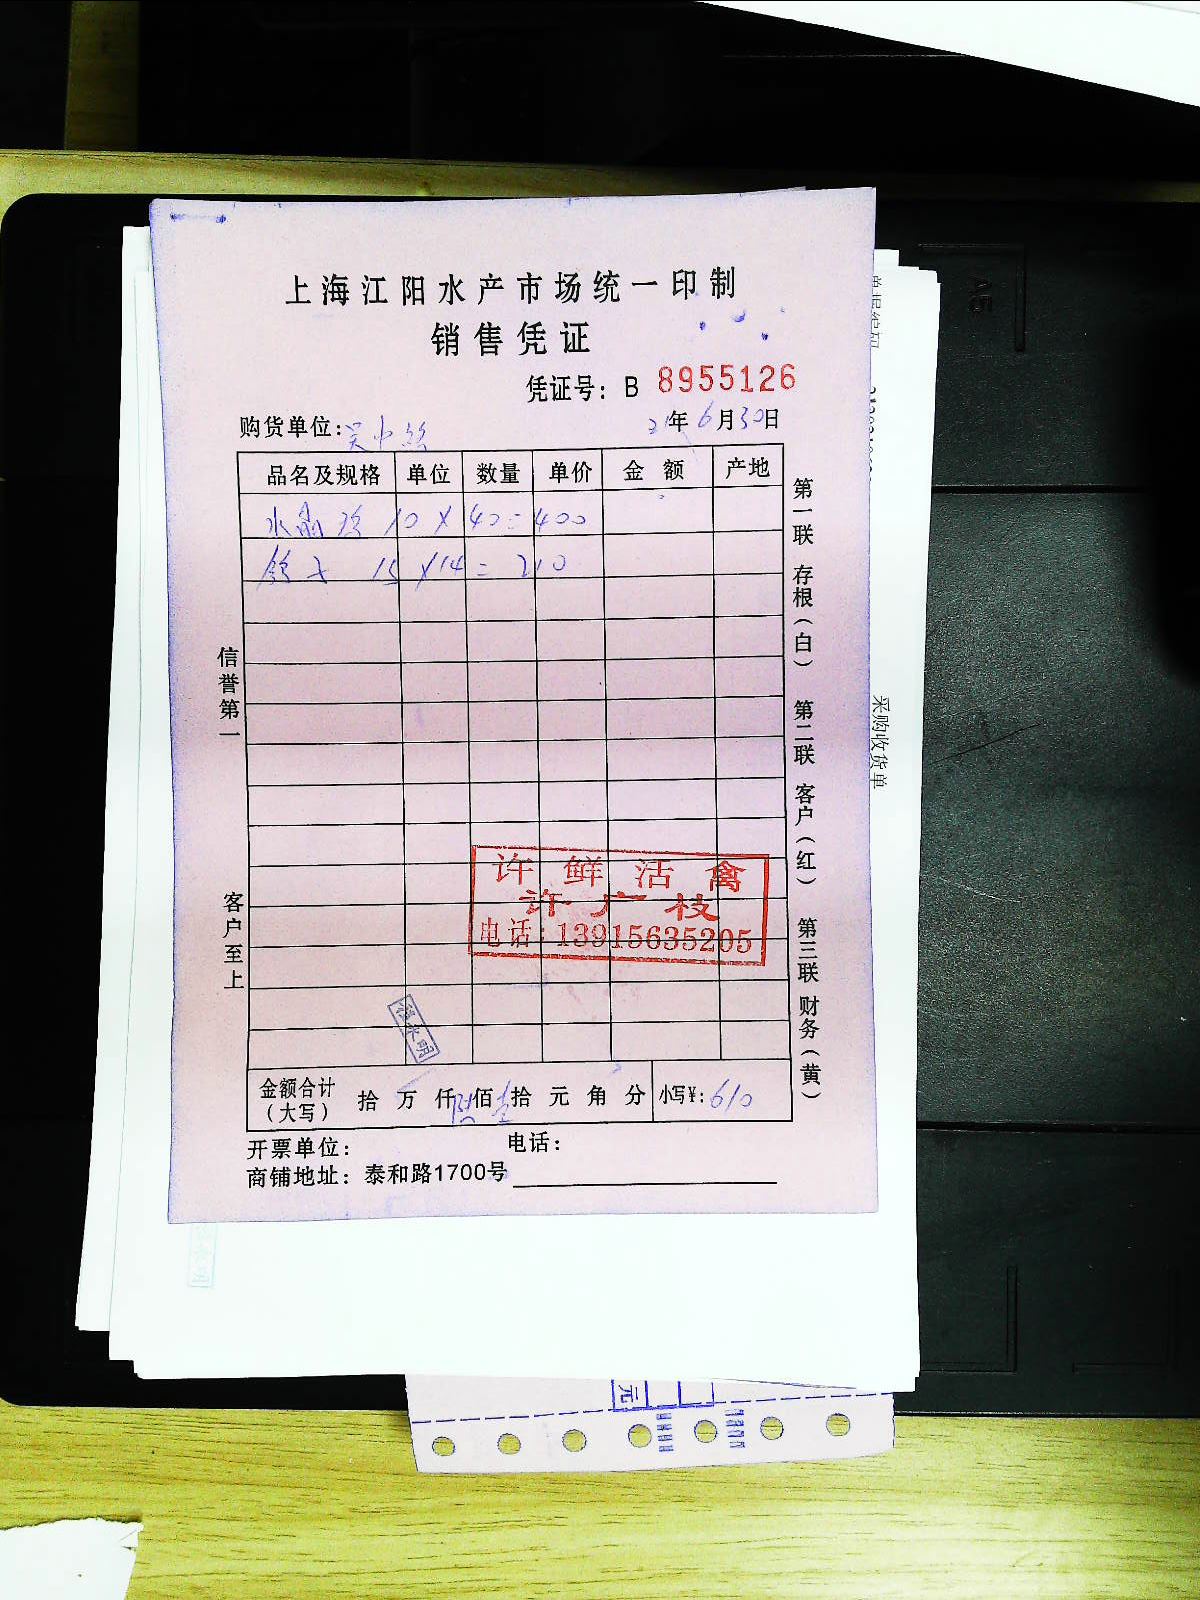 上海江阳水产市场统一印制
销售凭证
凭证号：B 8955126
购货单位：吴中路 21年6月30日
品名及规格 单位 数量 单价 金额 产地
水 10×40=400
15×14=210
信誉第一
客户至上
第一联 存根（白） 第二联 客户（红） 第三联 财务（黄）
许鲜活禽
许广枝
电话：13915635205
金额合计（大写） 拾 万 仟 陆佰壹拾 元 角 分 小写¥：610
开票单位： 电话：
商铺地址：泰和路1700号
采购收货单
A5
元